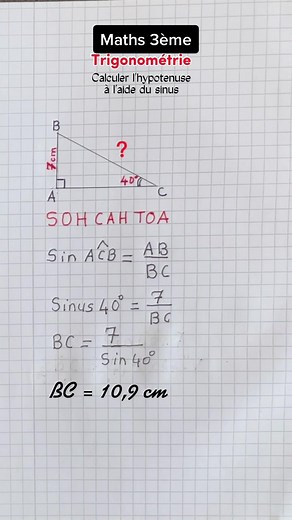 Maths 3ème
Trigonométrie
Calculer l'hypotenuse
à l'aide du sinus
B
?
7cm
40°
A
C
SOH CAH TOA
Sin AĈB = AB
BC
Sinus 40° = 7
BC
BC = 7
Sin 40°
BC = 10,9 cm